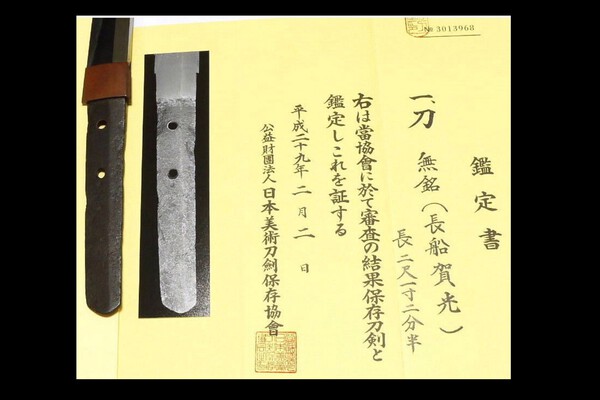 № 3013968
鑑定書
一、刀 無銘(長船賀光)
長 二尺一寸二分半
右は當協會に於て審査の結果保存刀剣と
鑑定しこれを証する
平成二十九年 二月 二日
公益財團法人 日本美術刀劍保存協會